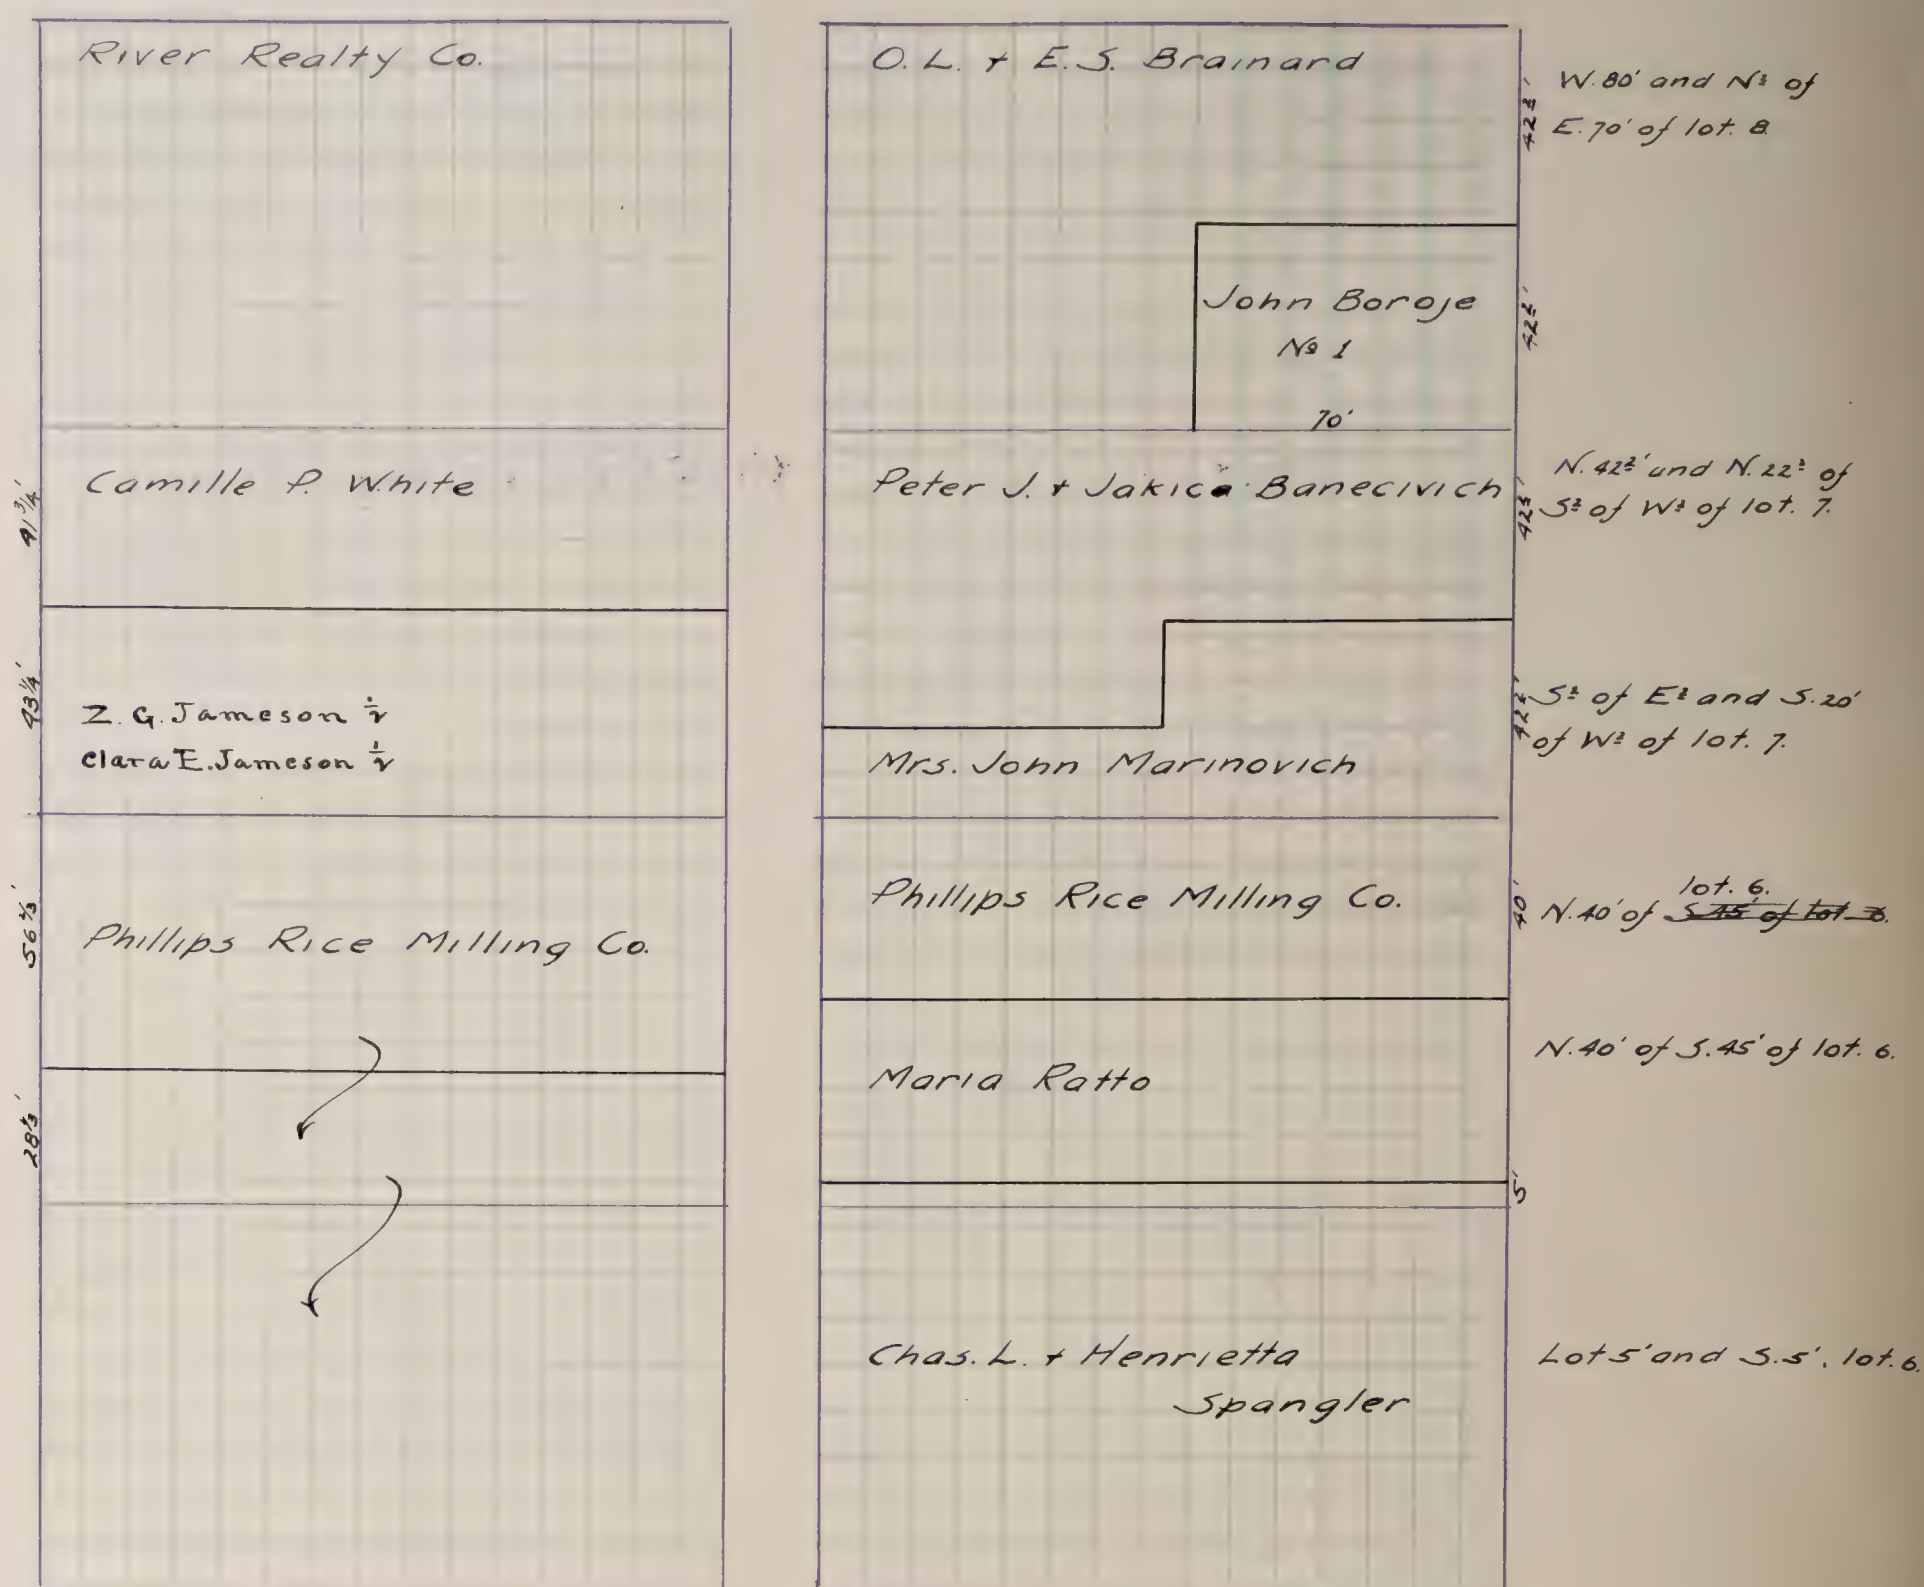 River Realty Co.
41 3/4'
Camille P. White
43 1/4'
Z. G. Jameson 1/2
Clara E. Jameson 1/2
56 2/3'
Phillips Rice Milling Co.
28 1/3'
O. L. & E. S. Brainard
42 1/2'
W. 80' and N 1/2 of
E. 70' of lot. 8.
John Boroje
No 1
70'
42 1/2'
Peter J. & Jakica Banecivich
42 1/2'
N. 42 1/2' and N. 22 1/2 of
S 1/2 of W 1/2 of lot. 7.
Mrs. John Marinovich
42 1/2'
S 1/2 of E 1/2 and S. 20'
of W 1/2 of lot. 7.
Phillips Rice Milling Co.
40'
lot. 6.
N. 40' of S 45' of lot 6.
Maria Ratto
N. 40' of S. 45' of lot. 6.
5'
Chas. L. & Henrietta
Spangler
Lot 5' and S. 5', lot. 6.